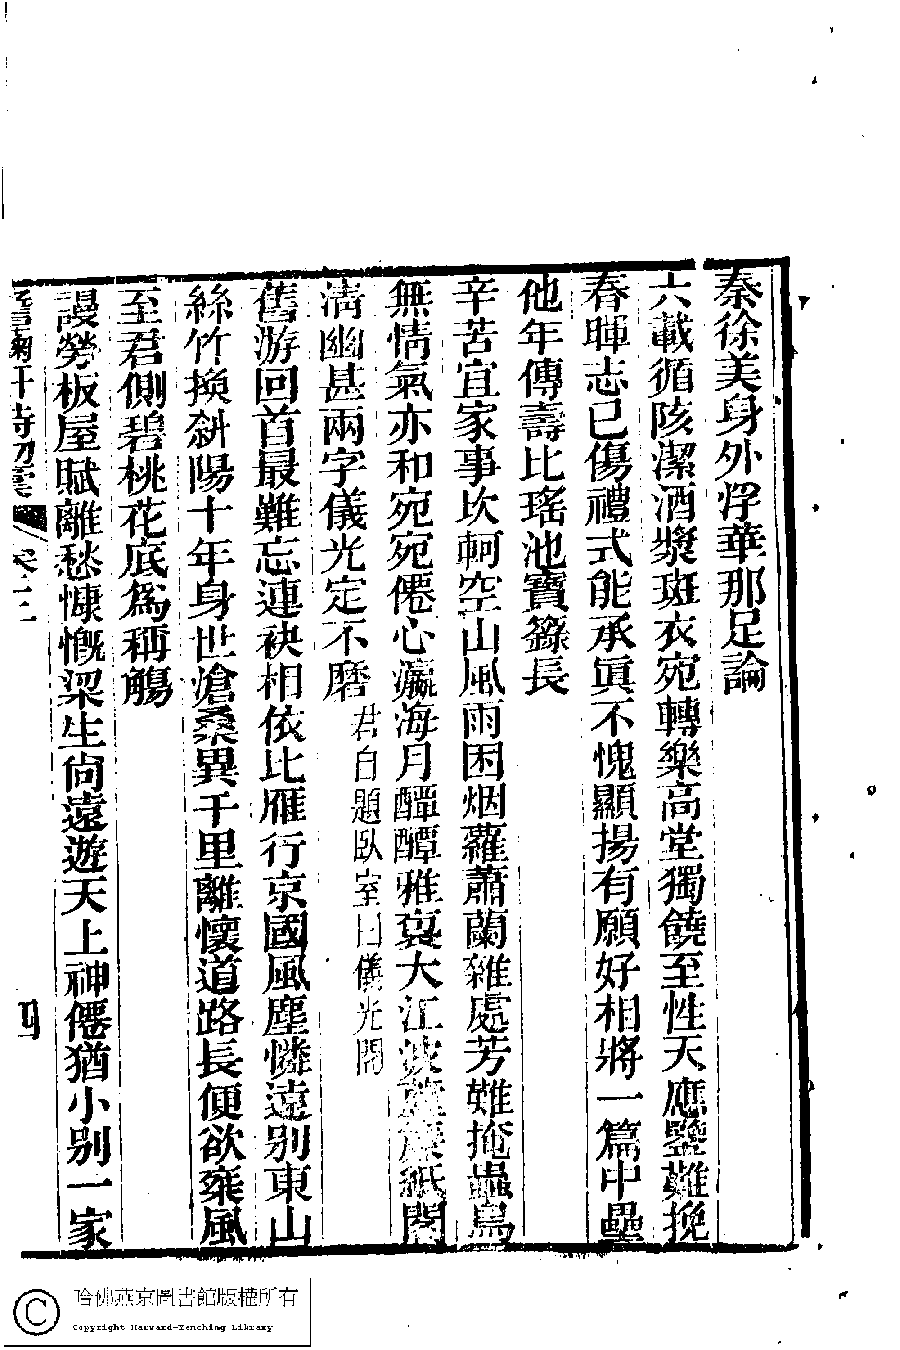 秦徐美身外浮華那足論
六載循陔潔酒漿斑衣宛轉樂高堂獨饒至性天應鑒難挽
春暉志已傷禮式能承眞不愧顯揚有願好相將一篇中壘
他年傳壽比瑤池寶籙長
辛苦宜家事坎軻空山風雨困烟蘿蕭蘭雜處芳難掩蟲鳥
無情氣亦和宛宛僊心瀛海月醰醰雅裏大江波蘆簾紙閣
清幽甚兩字儀光定不磨君自題臥室曰儀光閣
舊游回首最難忘連袂相依比雁行京國風塵憐遠別東山
絲竹換斜陽十年身世滄桑異千里離懷道路長便欲乘風
至君側碧桃花底爲稱觴
謾勞板屋賦離愁慷慨梁生尙遠遊天上神僊猶小別一家
卷三
四
哈佛燕京圖書館版權所有
Copyright Harvard-Yenching Library